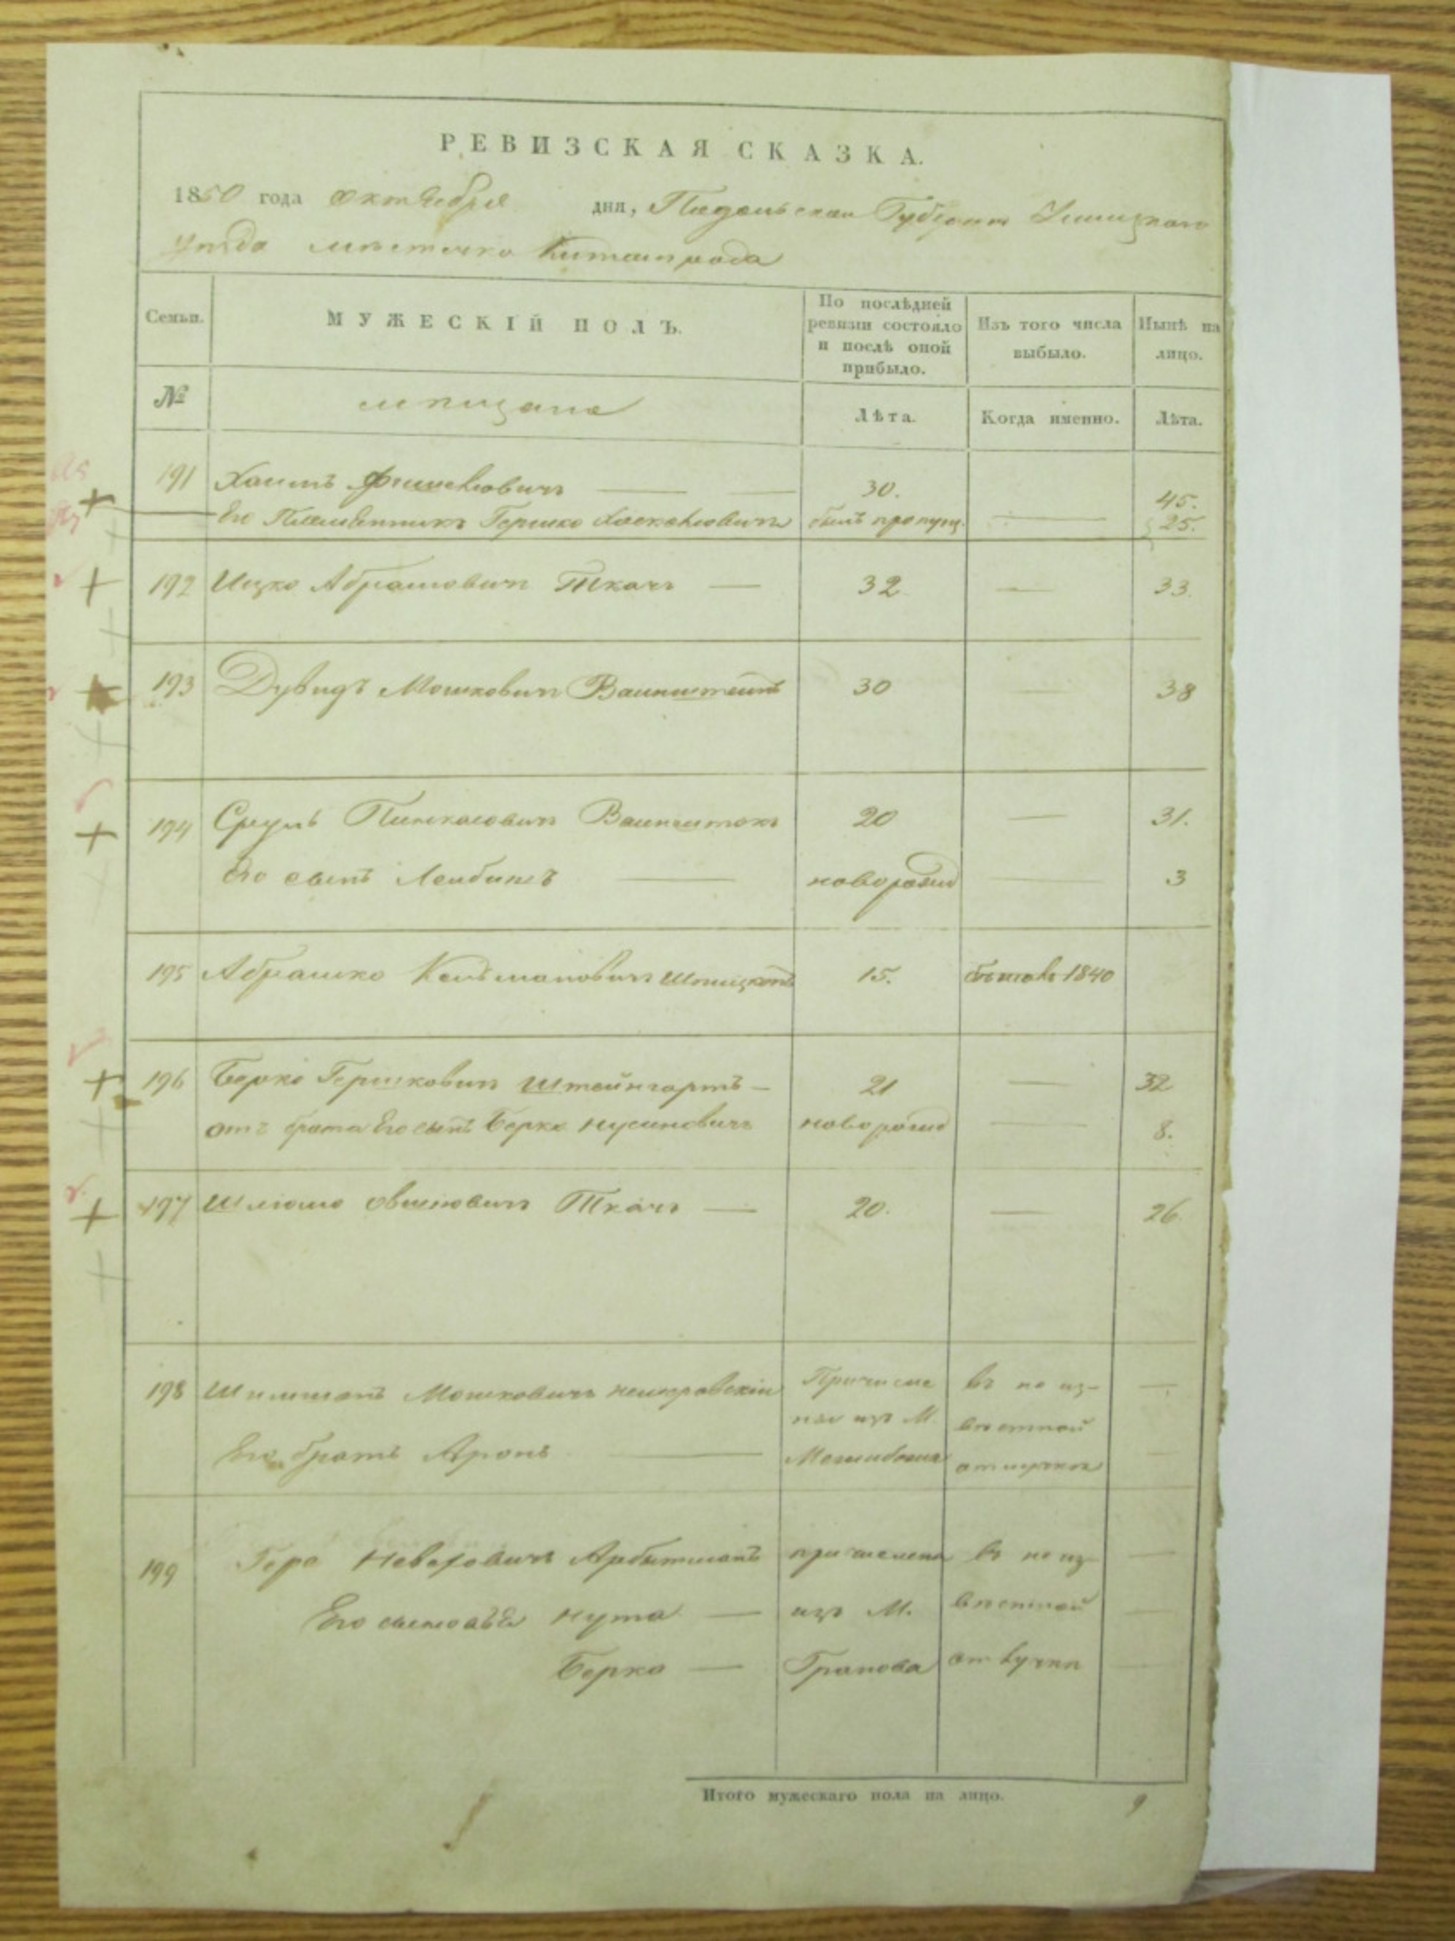 РЕВИЗСКАЯ СКАЗКА.
1850 года Октября дня, Подольская Губерния Ушицкаго
уезда местечко Китайгрода
Семьи. МУЖЕСКІЙ ПОЛЪ. По послѣдней ревизіи состояло и послѣ оной прибыло. Изъ того числа выбыло. Нынѣ на лицо.
№ мѣщане Лѣта. Когда именно. Лѣта.
191 Хаимъ Фишелювичъ — — 30. 45.
Его Племянникъ Гершко былъ пропущ. — 25.
192 Ицко Абрамовичъ Ткачъ — 32 — 33.
193 Дувидъ Мошковичъ Ваинштеинъ 30 — 38
194 Сруль Пинкасовичъ Ваинштокъ 20 — 31.
Его сынъ Лейбишъ — новорожд — 3
195 Абрашко Кельмановичъ 15. 1840
196 Берко Гершковичъ Штейнгартъ — 21 — 32
отъ брата Его сынъ Берко Нусиновичъ новорожд — 8.
197 Шлiомо Овшiовичъ Ткачъ — 20. — 26
198 Шимшонъ Мошковичъ Немировскiи Причисле въ не из- —
нъ изъ М. вѣстной
Его братъ Аронъ — отлучкѣ —
199 Геро Арбитманъ причислены въ не из- —
Его сыновья Нута — изъ М. вѣстной —
Берко — Грапова отлучки —
Итого мужескаго пола на лицо. 9